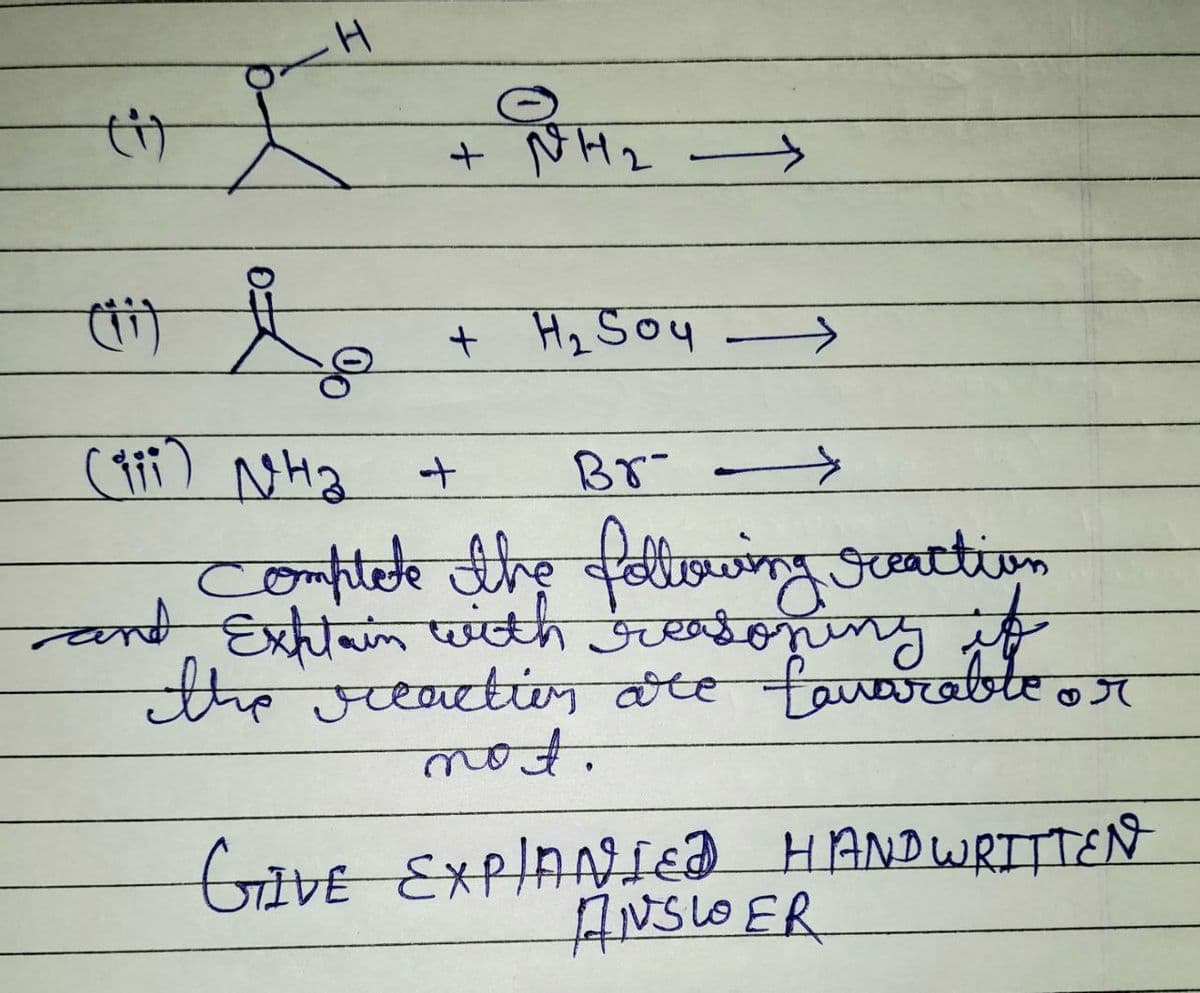 (i) O-H + ⊖NH2 →
(ii) O O⊖ + H2SO4 →
(iii) NH3 + Br- →
Complete the following reaction
and Explain with reasoning if
the reaction are favarable or
not.
GIVE EXPlANIED HANDWRITTEN
ANSWER